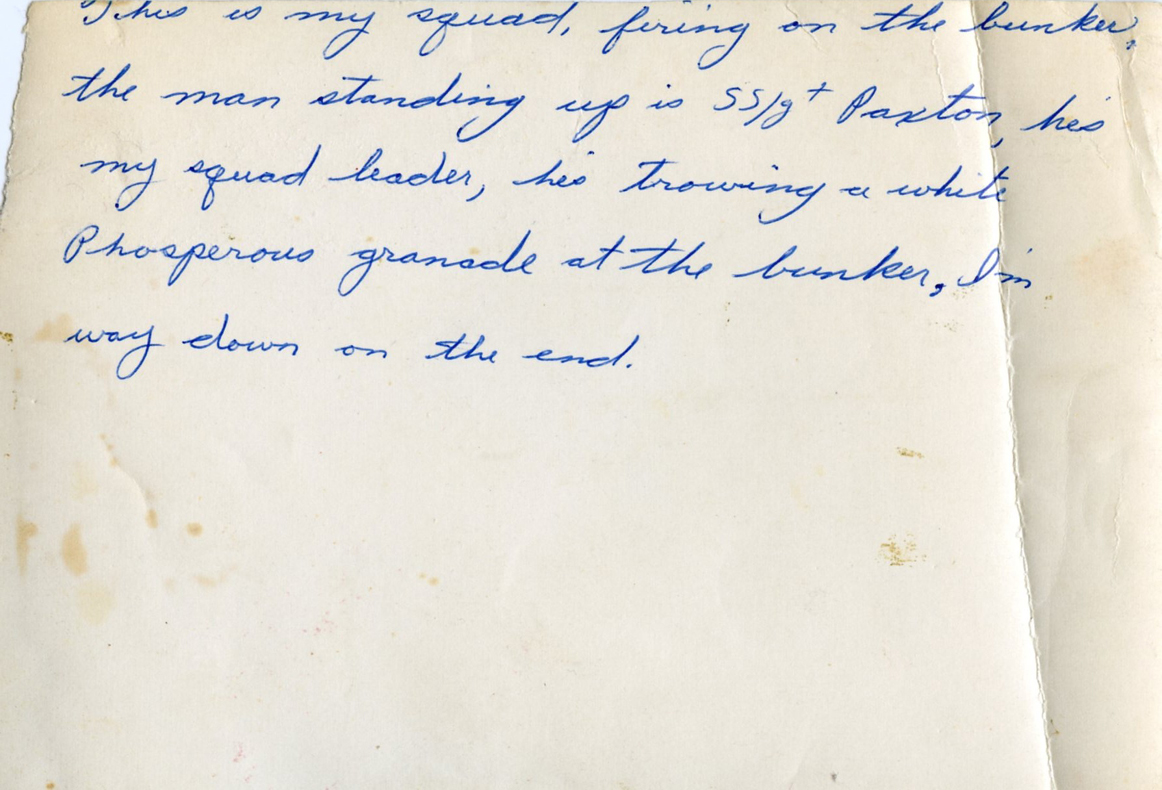 This is my squad, firing on the bunker,
the man standing up is SS/gt Paxton, hes
my squad leader, hes trowing a white
Phosperous granade at the bunker, I'm
way down on the end.